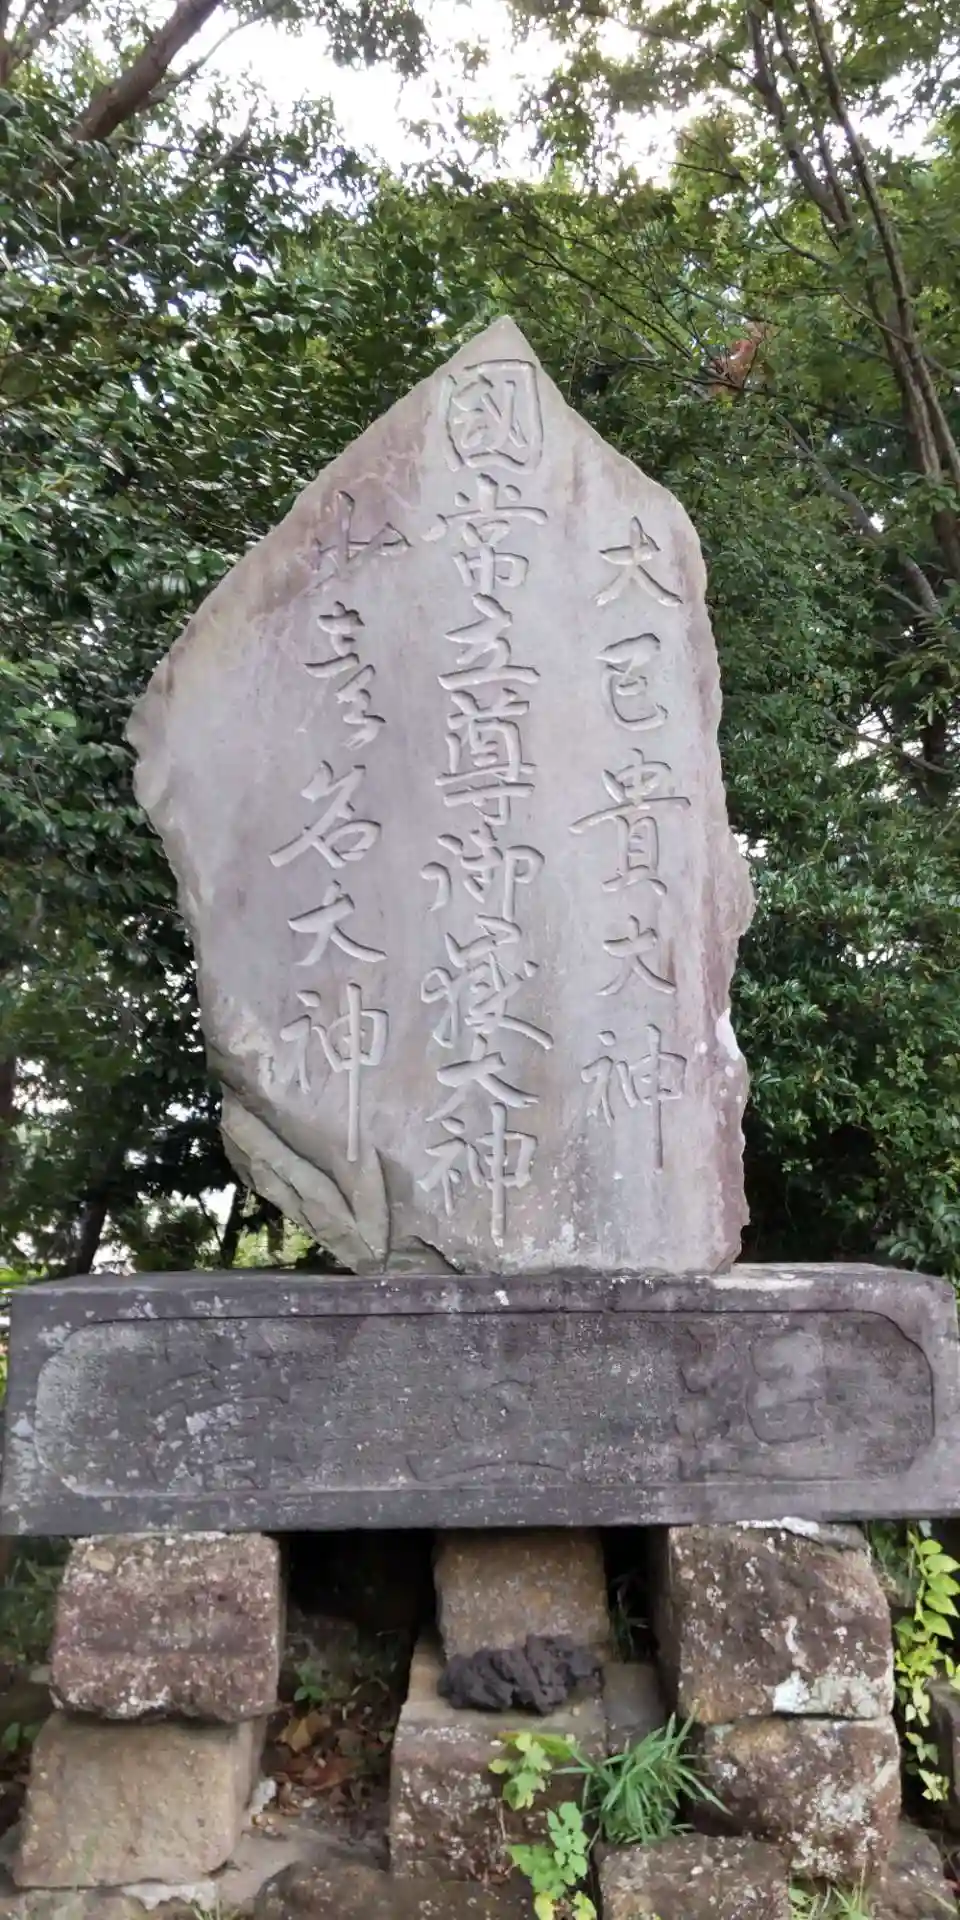 大己貴大神
國常立尊御嶽大神
少彦名大神